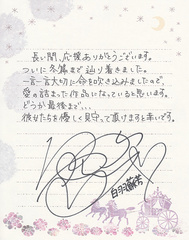 長い間、応援ありがとうございます。
ついに冬篇まで辿り着きました。
一言一言大切に命を吹き込みましたので、
愛の詰まった作品になっていると思います。
どうか最後まで...
彼女たちを優しく見守って頂けますと幸いです。